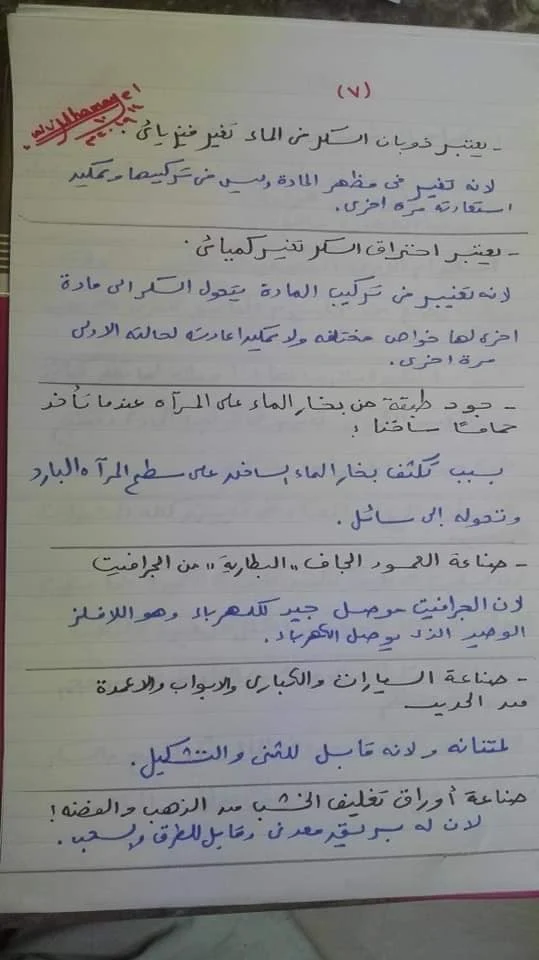 (٧)
- يعتبر ذوبان السكر في الماء تغير فيزيائي.
لانه تغير في مظهر المادة وليس في تركيبها ويمكن
استعادته مرة اخرى.
- يعتبر احتراق السكر تغير كميائي.
لانه تغيير في تركيب المادة يتحول السكر الى مادة
اخرى لها خواص مختلفه ولا يمكن اعادته لحالته الاولى
مرة اخرى.
- وجود طبقة من بخار الماء على المرآه عندما تأخد
حمامًا ساخنا؛
بسبب تكثف بخار الماء الساخن على سطح المرآه البارد
وتحوله إلى سائل.
- صناعة العمود الجاف "البطارية" من الجرافيت
لان الجرافيت موصل جيد للكهرباء وهو اللافلز
الوحيد الذي يوصل الكهرباء.
- صناعة السيارات والكبارى والابواب والاعمدة
من الحديد
لمتنانه ولانه قابل للثنى والتشكيل.
صناعة أوراق تغليف الخشب من الذهب والفضه!
لان له بريق معدنى وقابل للطرق والسحب.